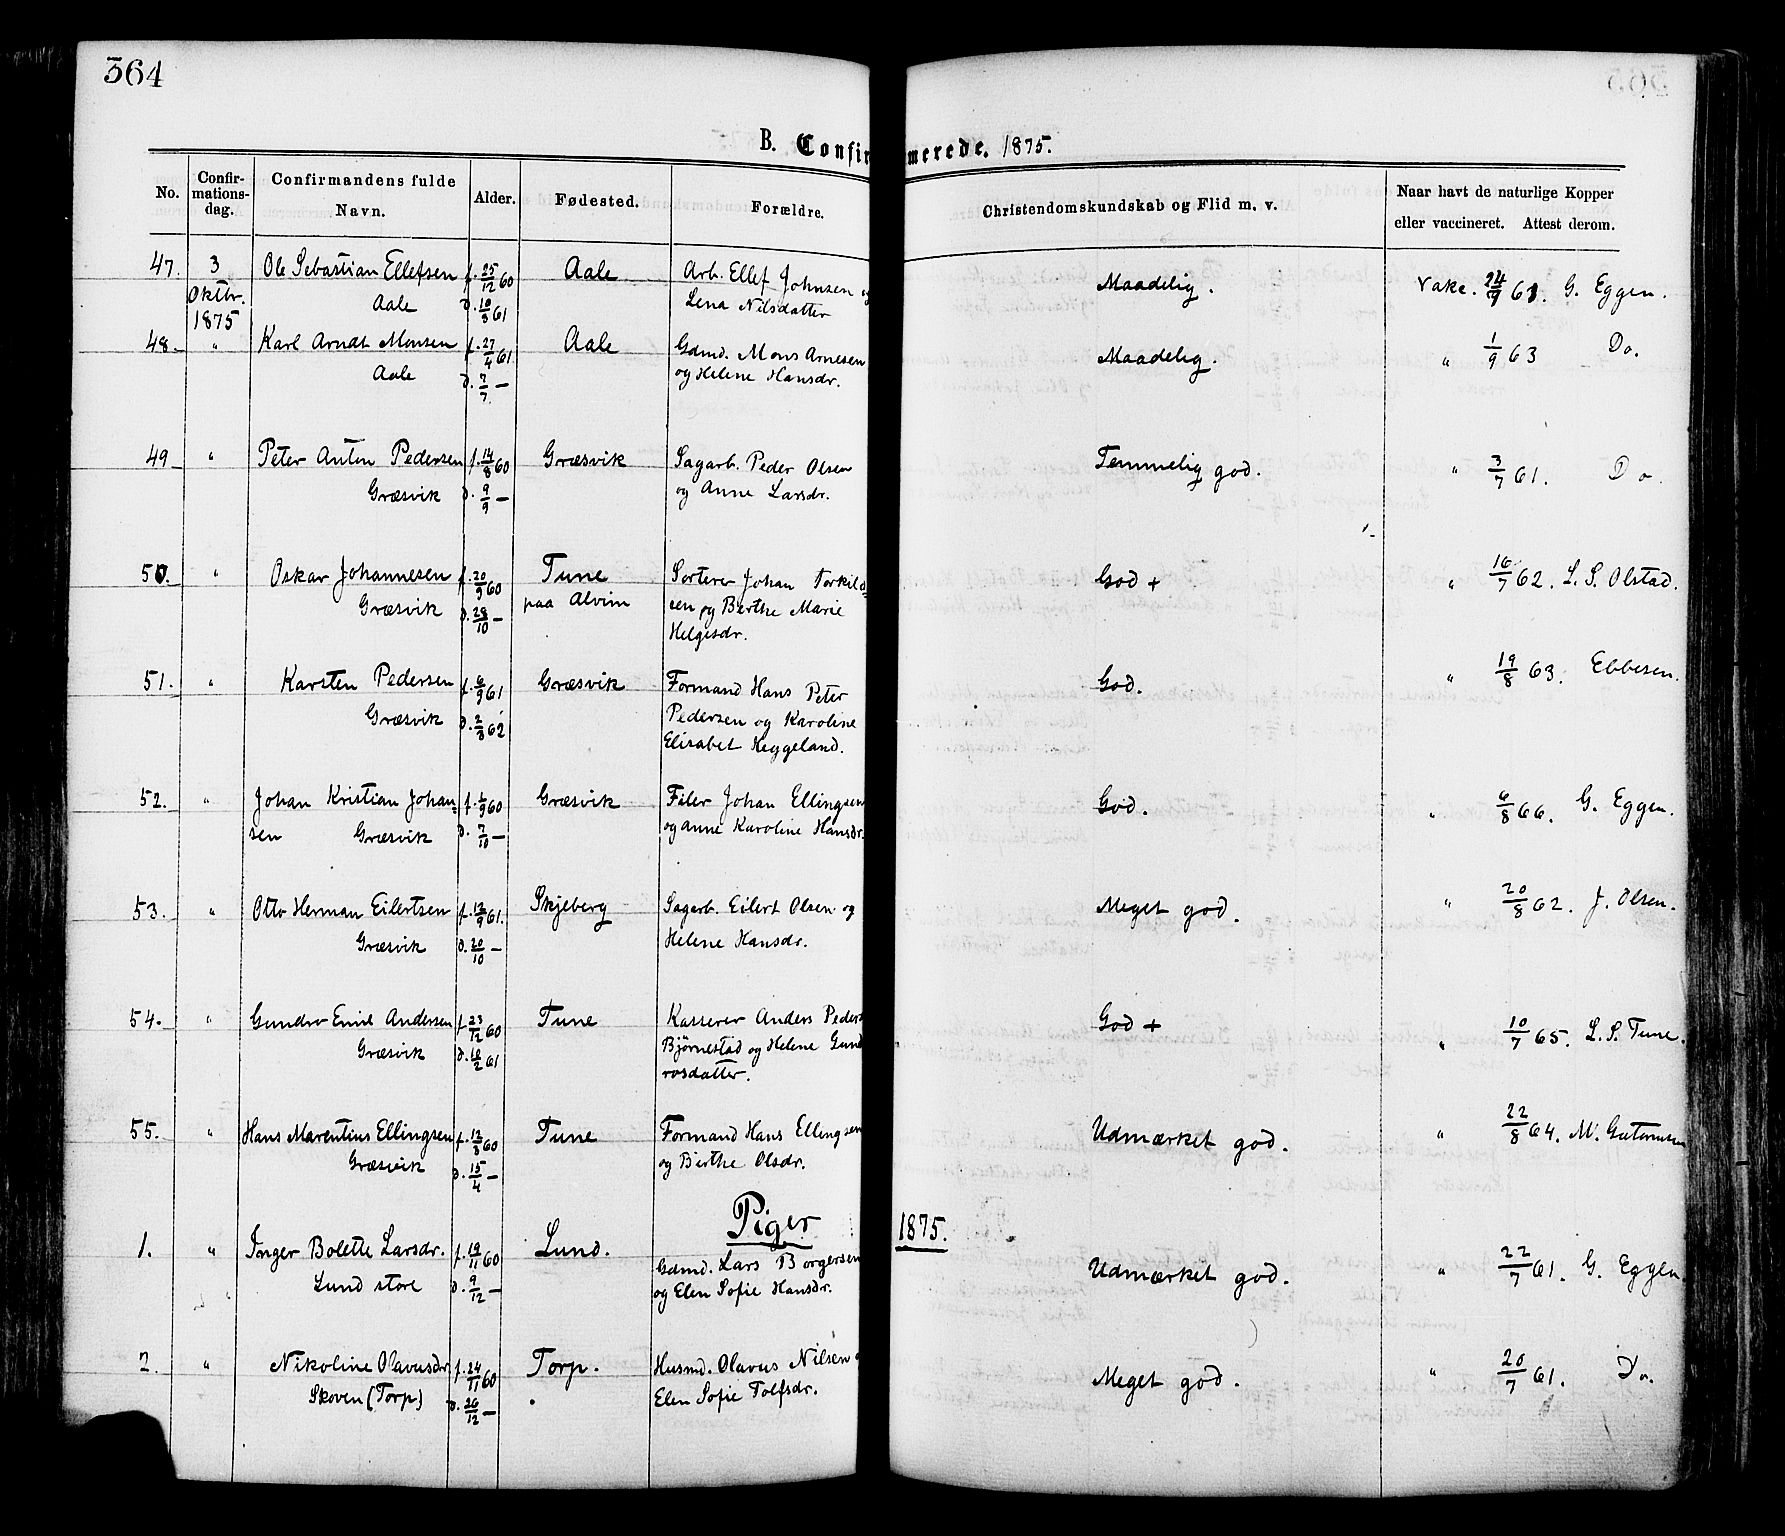 364
B. Confirmerede. 1875.
No.
Confir-
mations-
dag.
Confirmandens fulde
Navn.
Alder.
Fødested.
Forældre.
Christendomskundskab og Flid m. v.
Naar havt de naturlige Kopper
eller vaccineret. Attest derom.
47. 3 Ole Sebastian Ellefsen f. 25/12 60 Aale Arb. Ellef Johnsen og Maadelig. Vakc. 24/9 61. G. Eggen.
Oktbr. Aale d. 10/3 61 Lena Nilsdatter
1875
48. " Karl Arndt Monsen f. 27/4 61 Aale Gdmd. Mons Arnesen Maadelig. " 1/9 63 Do.
Aale d. 7/7 — og Helene Hansdr.
49 " Peter Anton Pedersen f. 14/8 60 Græsvik Sagarb. Peder Olsen Temmelig god. " 3/7 61. Do.
Græsvik d. 9/9 — og Anne Larsdr.
50. " Oskar Johannesen f. 20/9 60 Tune Sorterer Johan Torkild= God + " 16/7 62. L. S. Olstad.
Græsvik d. 28/10 — paa Alvim sen og Berthe Marie
Helgesdr.
51. " Karsten Pedersen f. 6/9 61 Græsvik Formand Hans Peter God. " 19/8 63. Ebbesen.
Græsvik d. 2/3 62 Pedersen og Karoline
Elisabet Heggeland.
52. " Johan Kristian Johan= f. 1/9 60 Græsvik Filer Johan Ellingsen God. " 6/8 66. G. Eggen.
sen Græsvik d. 7/10 — og Anne Karoline Hansdr.
53. " Otto Herman Eilertsen f. 12/9 61. Skjeberg Sagarb. Eilert Olsen og Meget god. " 20/8 62. J. Olsen.
Græsvik d. 20/10 — Helene Hansdr.
54. " Gundro Emil Andersen f. 23/12 60 Tune Kasserer Anders Peders God + " 10/7 65. L. S. Tune.
Græsvik d. 10/2 61 Bjørnestad og Helene Gund
rosdatter.
55. " Hans Marentius Ellingsen f. 12/8 60 Tune Formand Hans Ellingsen Udmærket god. " 22/8 64. M.
Græsvik d. 15/4 — og Berthe Olsdr.
Piger 1875.
1. " Inger Bolette Larsdr. f. 19/11 60 Lund. Gdmd. Lars Borgersen Udmærket god. " 22/7 61. G. Eggen.
Lund store d. 9/12 — og Elen Sofie Hansdr.
2. " Nikoline Olavusdr f. 24/11 60 Torp. Husmd. Olavus Nilsen Meget god. " 20/7 61. Do.
Skoven (Torp) d. 26/12 — Elen Sofie Tolfsdr.